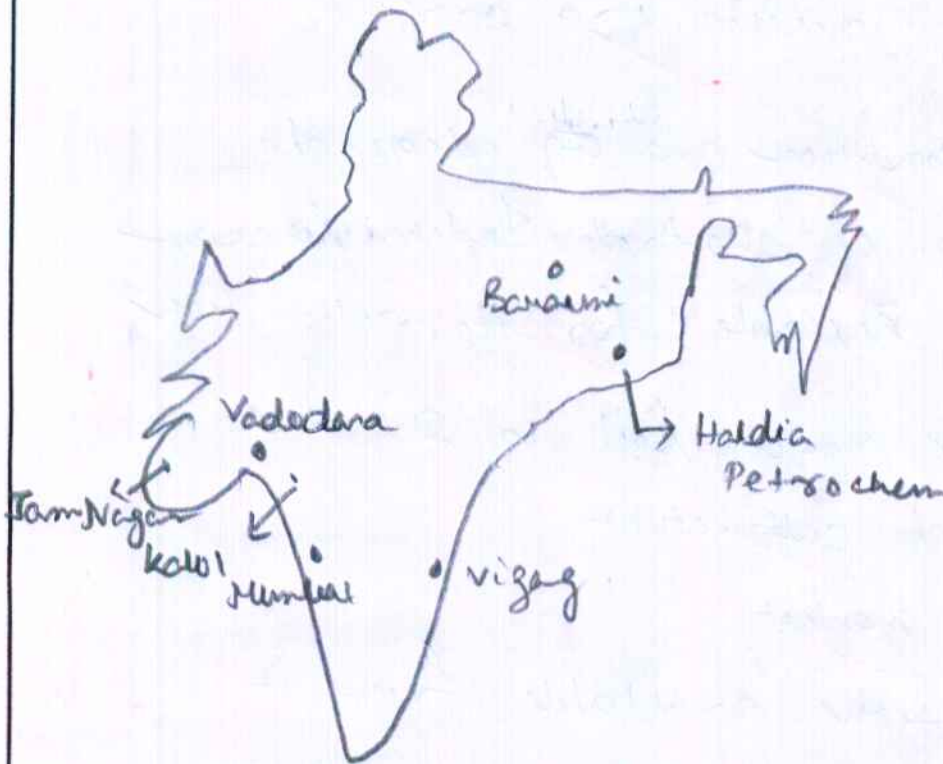 Barauni
Vadodara
Haldia
Petrochem
JamNagar
Kalol
Mumbai
Vizag